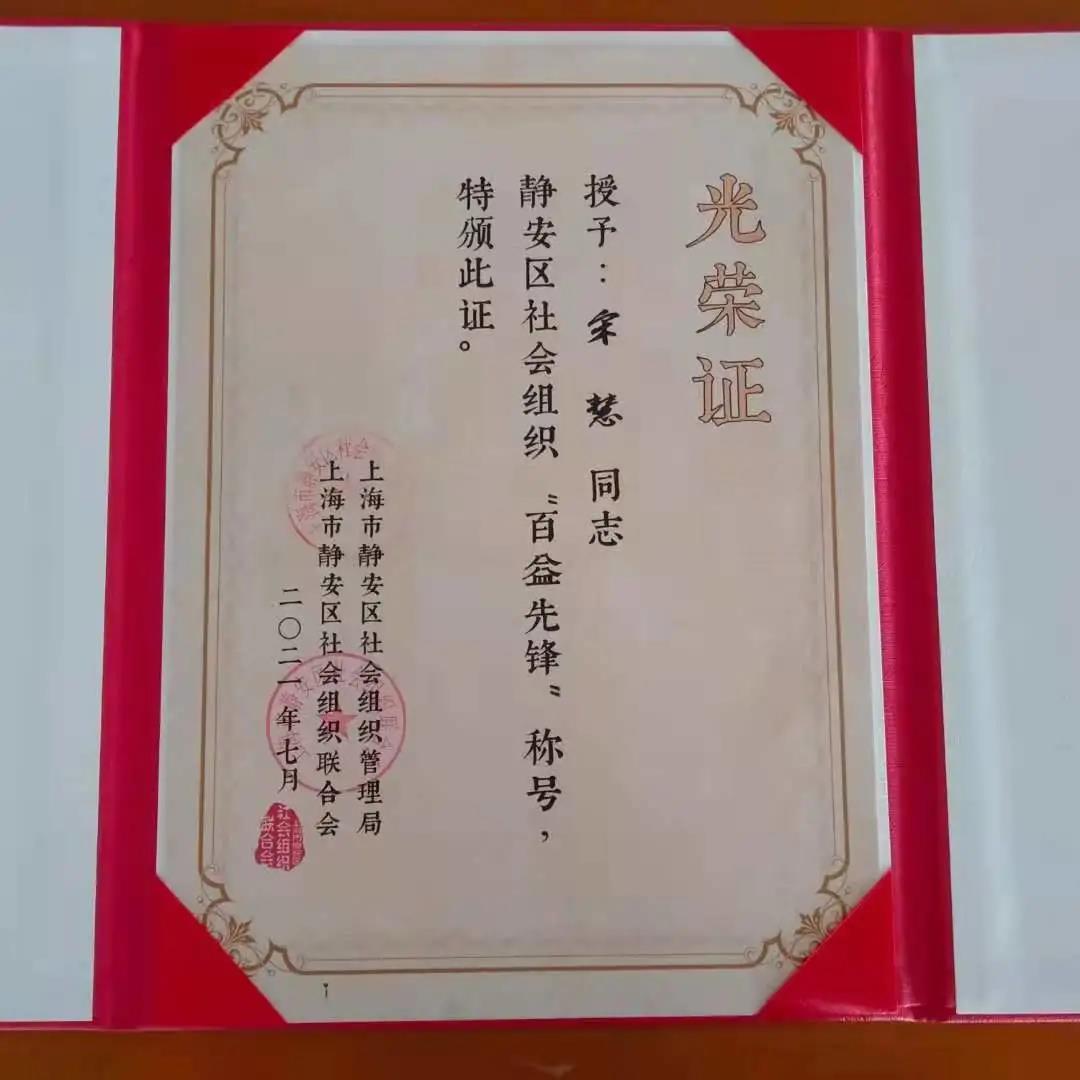 光荣证
授予：宋慧同志
静安区社会组织“百益先锋”称号，
特颁此证。
上海市静安区社会组织管理局
上海市静安区社会组织联合会
二〇二一年七月
社会组织
联合会